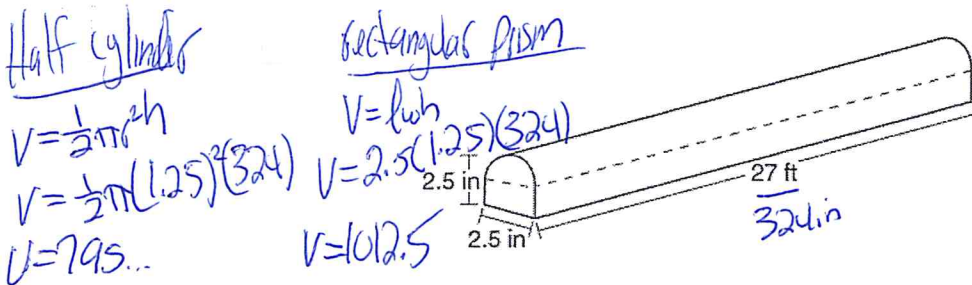 Half cylinder
V = 1/2 πr²h
V = 1/2 π(1.25)²(324)
V = 795...
rectangular prism
V = lwh
V = 2.5(1.25)(324)
V = 1012.5
2.5 in
2.5 in
27 ft
324 in